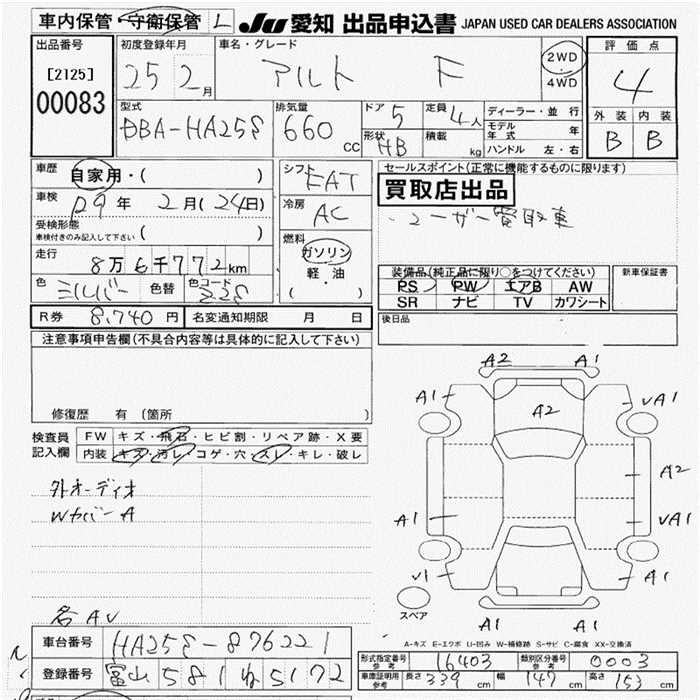 車内保管・守衛保管 L JU 愛知 出品申込書 JAPAN USED CAR DEALERS ASSOCIATION
出品番号 初度登録年月 車名・グレード 評価点
[2125] 25 2月 アルト F 2WD・4WD 4
00083
型式 排気量 ドア 5 定員 4人 ディーラー・並行 外装 内装
DBA-HA25S 660cc 形状 HB 積載 kg モデル年式 年 B B
ハンドル 左・右
車歴 自家用・( ) シフト FAT セールスポイント(正常に機能するものに限ります)
車検 R9年 2月(24日) 冷房 AC 買取店出品
受検形態 車検付きのみ記入して下さい ( ) ・ユーザー買取車
走行 8万6千772km 燃料 ガソリン・軽油・( )
色 シルバー 色替 色コード Z2S 装備品(純正品に限り○をつけてください) 新車保証書
PS PW エアB AW
SR ナビ TV カワシート
R券 8,740円 名変通知期限 月 日 後日品
注意事項申告欄(不具合内容等は具体的に記入して下さい)
修復歴 有(箇所 )
検査員記入欄 FW キズ・飛石・ヒビ割・リペア跡・X要
内装 キズ・汚レ・コゲ・穴・スレ・キレ・破レ
外オーディオ
WカバーA
各AU
A2 A1
A1 A2 vA1
A2
A1 vA1
v1 A1
スペア A1 A1
A-キズ E-エクボ U-凹み W-補修跡 S-サビ C-腐食 XX-交換済
車台番号 HA25S-876221 形式指定番号 参考 16403 類別区分番号 参考 0003
登録番号 富山 581 ね 5172 車庫証明用 参考 長さ 339cm 幅 147cm 高さ 153cm